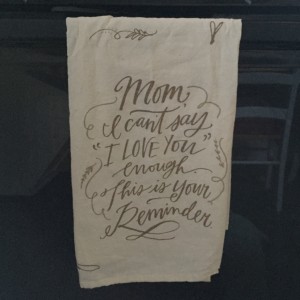 Mom,
I can't say
"I LOVE YOU"
enough
This is your
Reminder